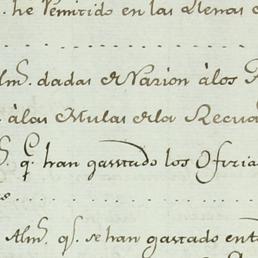 he Remitido en las Llenas
Alm.s dadas en Racion álos
álas Mulas dela Recua
q.e han gastado los Oficia
Alm.s q.e se han gastado ent